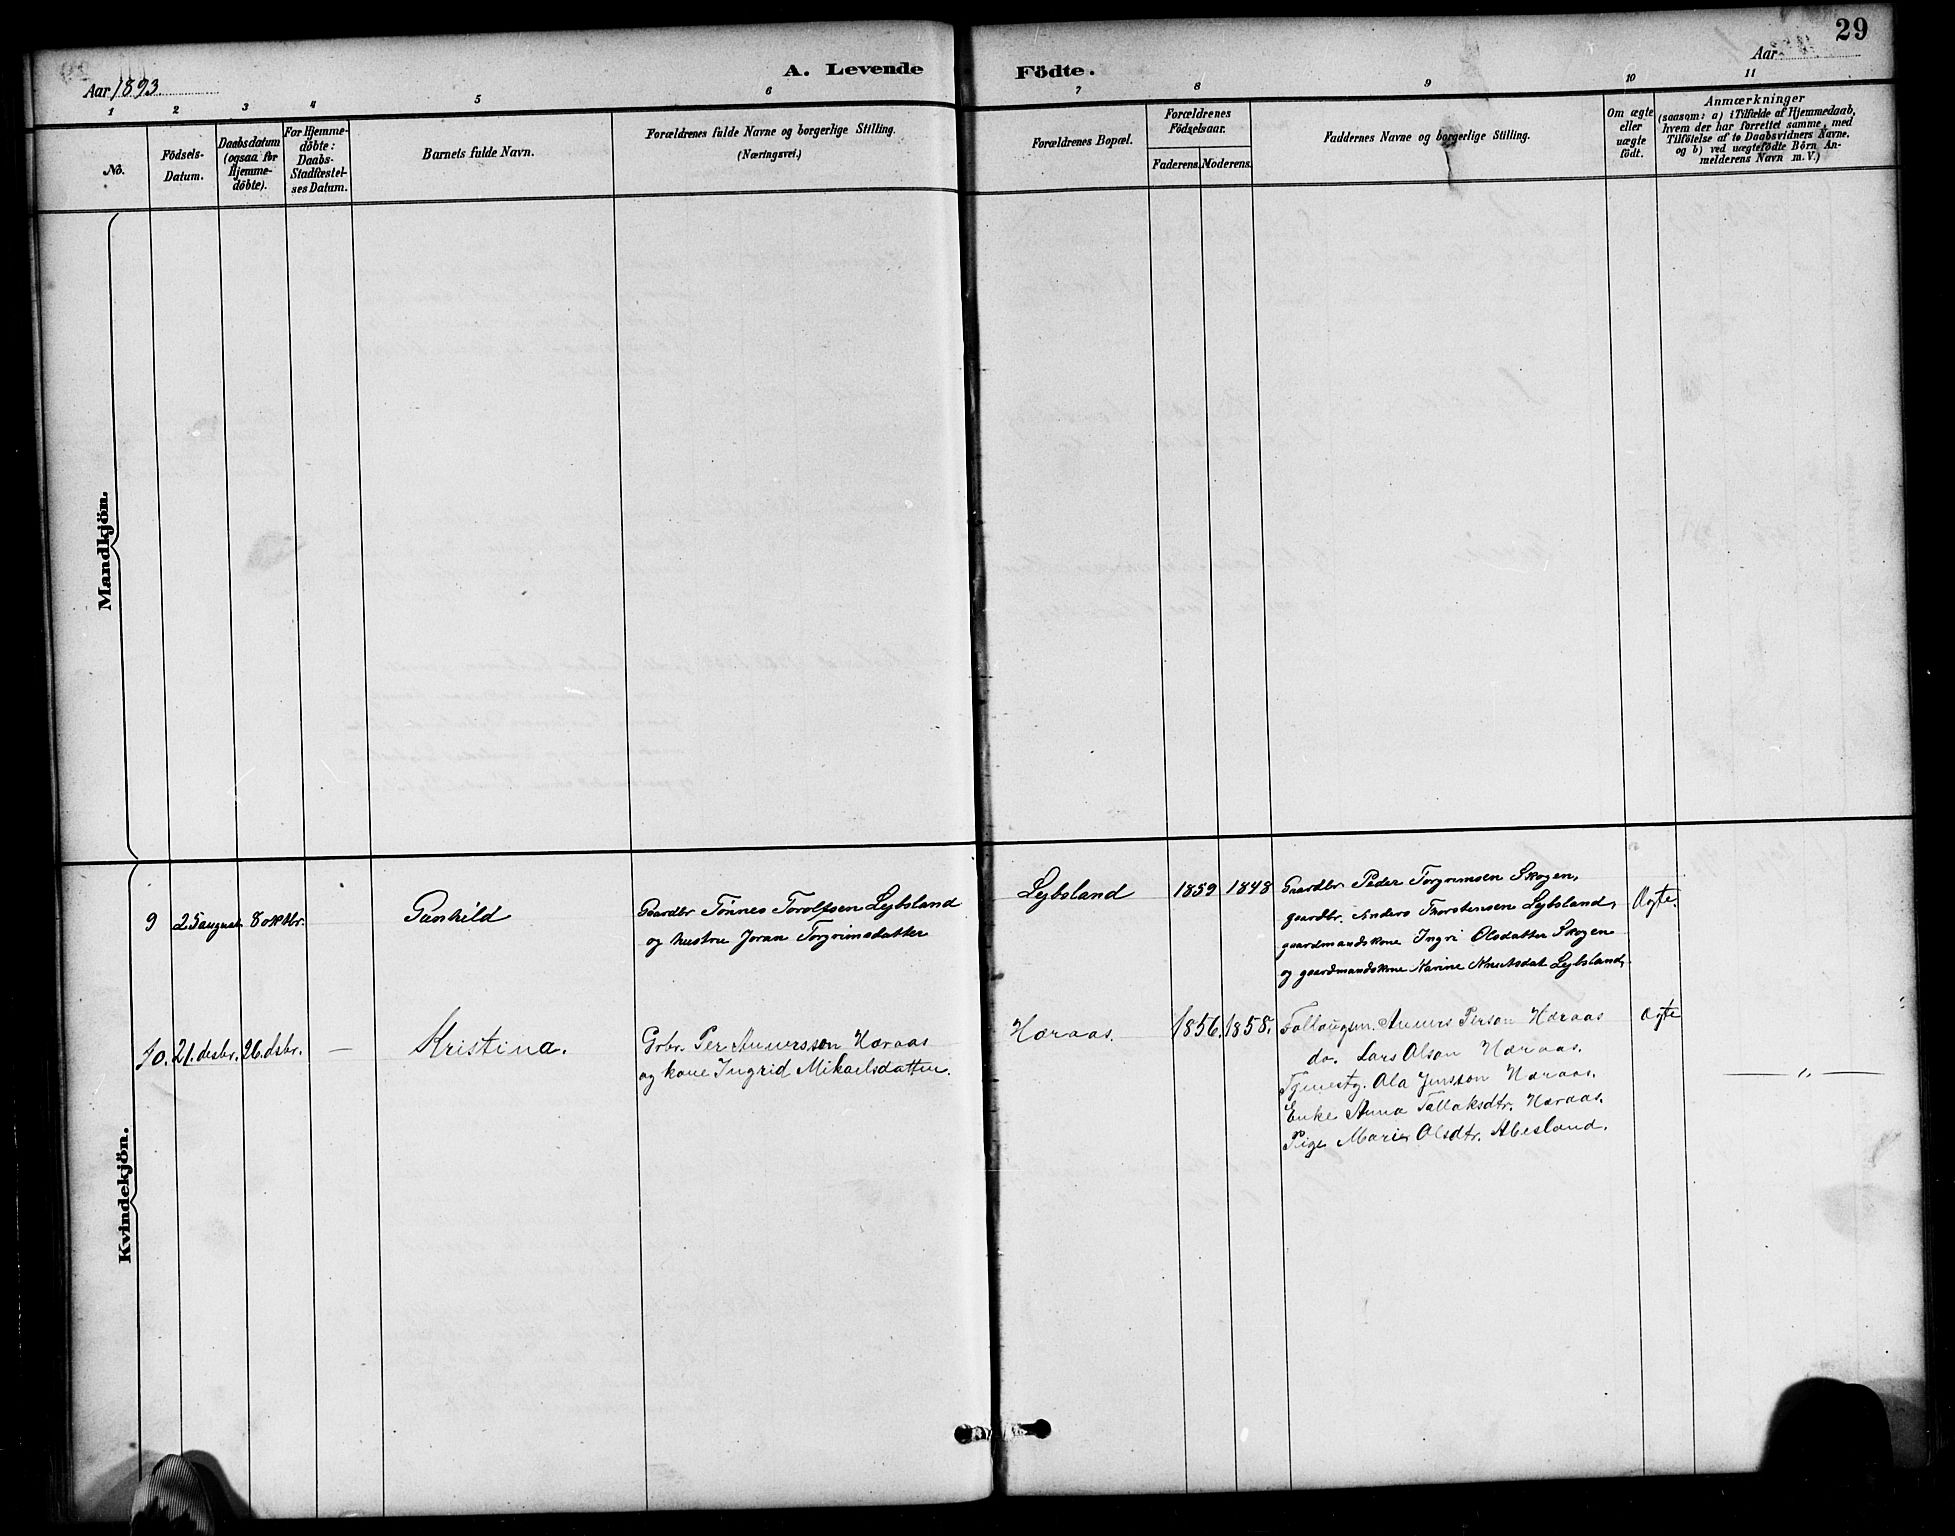 29
Aar 1893.
A. Levende Födte.
Aar
1 2 3 4 5 6 7 8 9 10 11
No.
Födsels-Datum.
Daabsdatum (ogsaa for Hjemme-döbte).
For Hjemme-döbte: Daabs-Stadfæstel-ses Datum.
Barnets fulde Navn.
Forældrenes fulde Navne og borgerlige Stilling.
(Næringsvei.)
Forældrenes Bopæl.
Forældrenes Födselsaar.
Faderens. Moderens.
Faddernes Navne og borgerlige Stilling.
Om ægte eller uægte födt.
Anmærkninger
(saasom: a) i Tilfælde af Hjemmedaab,
hvem der har forrettet samme, med
Tilföielse af to Daabsvidners Navne.
og b) ved uægtefödte Börn An-
melderens Navn m. V.)
Mandkjön.
Kvindekjön.
9 25 august 8 oktbr. Gunhild
Gaardbr Tönnes Torolfsen Lejbsland
og hustru Joran Torgrimsdatter
Lejbsland 1859 1848
Gaardbr. Peder Torgrimsen Skogen,
gaardbr. Anders Thorstensen Lejbsland,
gaardmandskone Ingri Olsdatter Skogen
og gaardmandskone Karine Knutsdat Lejbsland,
Ægte.
10. 21. desbr. 26. dsbr. — Kristina.
Grbr. Per Anderssen Høraas
og kone Ingrid Mikaelsdatter.
Høraas. 1856. 1858.
Anners Person Høraas
do. Lars Olson Høraas.
Tjenestg. Ola Jensson Høraas.
Enke Anna Tallaksdtr. Høraas.
Pige Marie Olsdtr. Abesland.
Ægte
— " —